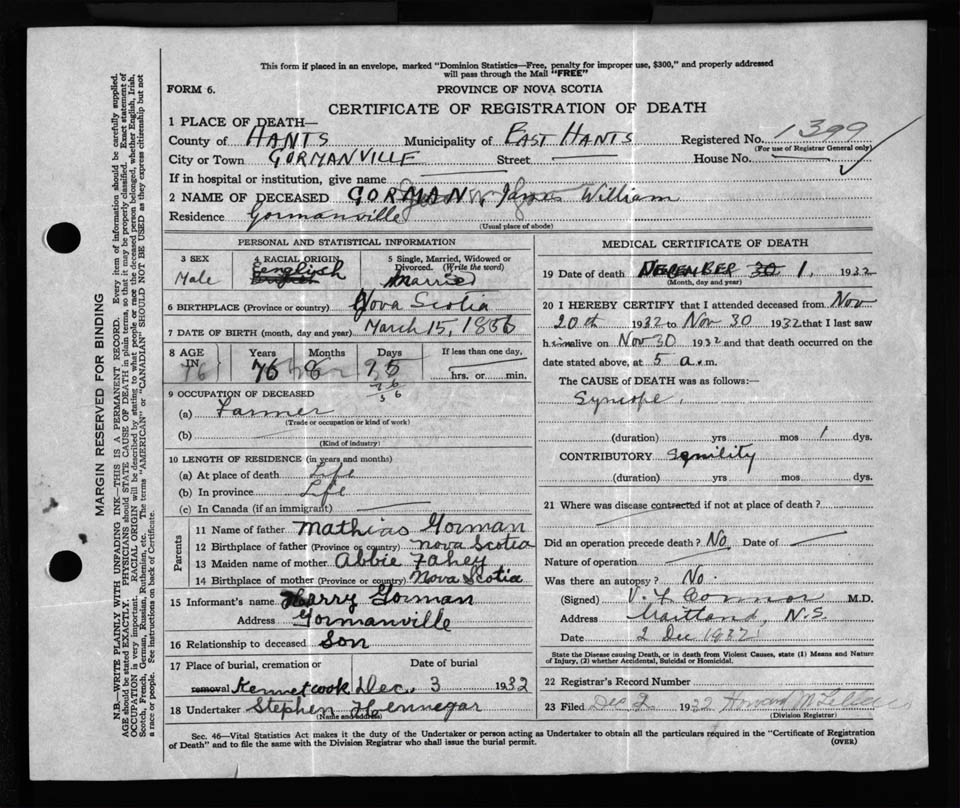 This form if placed in an envelope, marked "Dominion Statistics—Free, penalty for improper use, $300," and properly addressed
will pass through the Mail "FREE"
FORM 6.
PROVINCE OF NOVA SCOTIA
CERTIFICATE OF REGISTRATION OF DEATH
1 PLACE OF DEATH—
County of HANTS Municipality of EAST HANTS Registered No. 1399
(For use of Registrar General only)
City or Town GORMANVILLE Street House No.
If in hospital or institution, give name
2 NAME OF DECEASED GORMAN, James William
Residence Gormanville
(Usual place of abode)
PERSONAL AND STATISTICAL INFORMATION
3 SEX
Male
4 RACIAL ORIGIN
English
5 Single, Married, Widowed or
Divorced. (Write the word)
Married
6 BIRTHPLACE (Province or country) Nova Scotia
7 DATE OF BIRTH (month, day and year) March 15, 1856
8 AGE
IN
76
Years
76
Months
8
Days
If less than one day,
hrs. or min.
9 OCCUPATION OF DECEASED
(a) Farmer
(Trade or occupation or kind of work)
(b)
(Kind of industry)
10 LENGTH OF RESIDENCE (in years and months)
(a) At place of death Life
(b) In province Life
(c) In Canada (if an immigrant)
Parents
11 Name of father Mathias Gorman
12 Birthplace of father (Province or country) Nova Scotia
13 Maiden name of mother Abbie Fahey
14 Birthplace of mother (Province or country) Nova Scotia
15 Informant's name Harry Gorman
Address Gormanville
16 Relationship to deceased Son
17 Place of burial, cremation or
removal Kennetcook
Date of burial
Dec. 3 1932
18 Undertaker Stephen Hennegar
(Name and address)
MEDICAL CERTIFICATE OF DEATH
19 Date of death DECEMBER 30 1, 1932
(Month, day and year)
20 I HEREBY CERTIFY that I attended deceased from Nov
20th 1932 to Nov 30 1932 that I last saw
him alive on Nov 30 1932 and that death occurred on the
date stated above, at 5 a.m.
The CAUSE OF DEATH was as follows:—
Syncope.
(duration) yrs mos 1 dys.
CONTRIBUTORY Senility
(duration) yrs mos dys.
21 Where was disease contracted if not at place of death?
Did an operation precede death? No Date of
Nature of operation
Was there an autopsy? No.
(Signed) Connor M.D.
Address Maitland, N.S.
Date 2 Dec 1932
State the Disease causing Death, or in death from Violent Causes, state (1) Means and Nature
of Injury, (2) whether Accidental, Suicidal or Homicidal.
22 Registrar's Record Number
23 Filed Dec 2 1932 Howard
(Division Registrar)
Sec. 46—Vital Statistics Act makes it the duty of the Undertaker or person acting as Undertaker to obtain all the particulars required in the "Certificate of Registration
of Death" and to file the same with the Division Registrar who shall issue the burial permit.
(OVER)
MARGIN RESERVED FOR BINDING
N.B.—WRITE PLAINLY WITH UNFADING INK—THIS IS A PERMANENT RECORD. Every item of information should be carefully supplied.
AGE should be stated EXACTLY. PHYSICIANS should STATE CAUSE OF DEATH in plain terms, so that it may be properly classified. Exact statement of
OCCUPATION is very important. RACIAL ORIGIN will be described by stating to what people or race the deceased person belonged, whether English, Irish,
Scotch, French, German, Russian, Ruthenian, etc. The terms "AMERICAN" or "CANADIAN" SHOULD NOT BE USED as they express citizenship but not
a race or people. See instructions on back of Certificate.